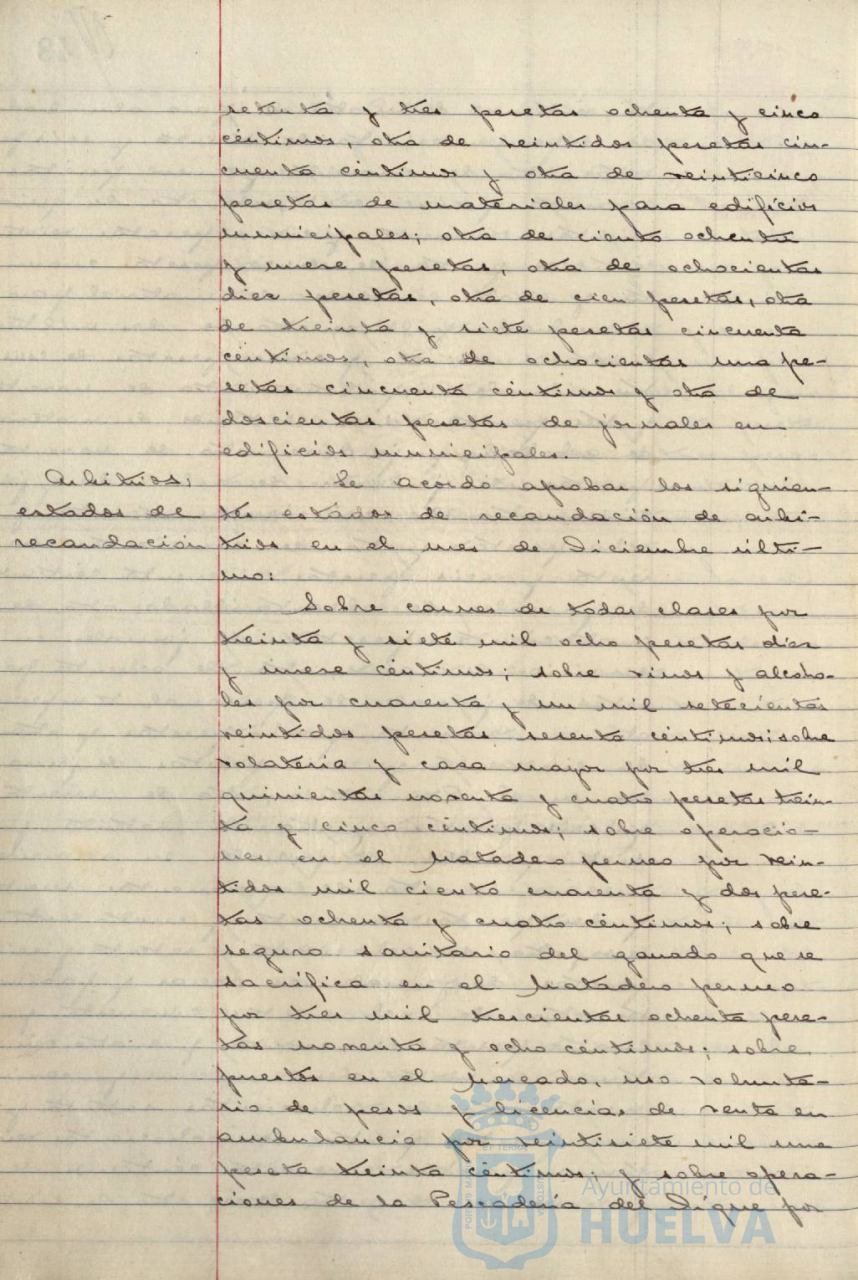 setenta y tres pesetas ochenta y cinco
céntimos, otra de veintidos pesetas cin-
cuenta céntimos y otra de veinticinco
pesetas de materiales para edificios
municipales; otra de ciento ochenta
y nueve pesetas, otra de ochocientas
diez pesetas, otra de cien pesetas, otra
de treinta y siete pesetas cincuenta
céntimos, otra de ochocientas una pe-
setas cincuenta céntimos y otra de
doscientas pesetas de jornales en
edificios municipales.
Arbitrios;
estados de
recaudación
Se acordó aprobar los siguien-
tes estados de recaudación de arbi-
trios en el mes de Diciembre últi-
mo:
Sobre carnes de todas clases por
treinta y siete mil ocho pesetas diez
y nueve céntimos; sobre vinos y alcoho-
les por cuarenta y un mil setecientas
veintidos pesetas sesenta céntimos; sobre
volateria y casa mayor por tres mil
quinientas noventa y cuatro pesetas trein-
ta y cinco céntimos; sobre operacio-
nes en el Matadero por vein-
tidos mil ciento cuarenta y dos pese-
tas ochenta y cuatro céntimos; sobre
seguro sanitario del ganado que se
sacrifica en el Matadero
por tres mil trescientas ochenta pese-
tas noventa y ocho céntimos; sobre
puestos en el Mercado, uso volunta-
rio de pesos y licencias de venta en
ambulancia por veintisiete mil una
peseta treinta céntimos; y sobre opera-
ciones de la Pescaderia del Dique por
Ayuntamiento de
HUELVA